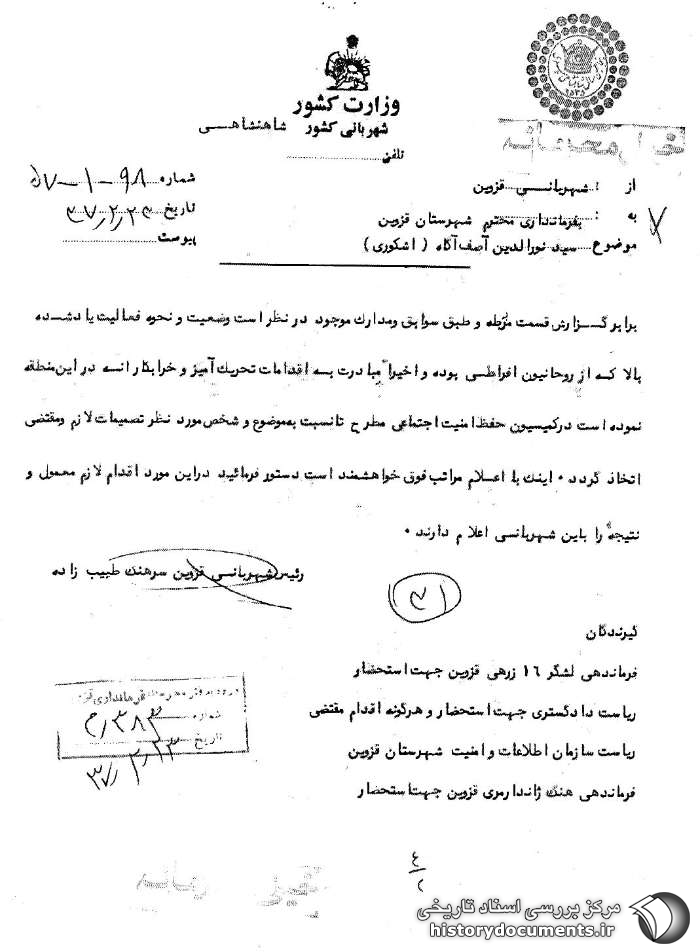 وزارت کشور
شهربانی کشور شاهنشاهی
تلفن
شماره ۹۸-۱-۵۷
تاریخ ۳۷/۲/۲۳
پیوست
از : شهربانی قزوین
به : بفرمانداری محترم شهرستان قزوین
موضوع سید نورالدین آصف آگاه ( اشکوری )
برابر گزارش قسمت مربطه و طبق سوابق ومدارک موجود در نظر است وضعیت و نحوه فعالیت یادشده
بالا که از روحانیون افراطی بوده و اخیراً مبادرت به اقدامات تحریک آمیز و خرابکارانه در این منطقه
نموده است درکمیسیون حفظ امنیت اجتماعی مطرح تا نسبت به موضوع و شخص مورد نظر تصمیمات لازم ومقتضی
اتخاذ گردد ۰ اینک با اعلام مراتب فوق خواهشمند است دستور فرمائید دراین مورد اقدام لازم معمول و
نتیجه را باین شهربانی اعلام دارند ۰
رئیس شهربانی قزوین سرهنگ طبیب زاده
۳۱
گیرندگان
فرماندهی لشگر ۱۶ زرهی قزوین جهت استحضار
ریاست دادگستری جهت استحضار و هرگونه اقدام مقتضی
ریاست سازمان اطلاعات و امنیت شهرستان قزوین
فرماندهی هنگ ژاندارمری قزوین جهت استحضار
فرمانداری
شماره ۳۸۳/م
تاریخ ۳۷/۲/۲۳
مرکز بررسی اسناد تاریخی
historydocuments.ir